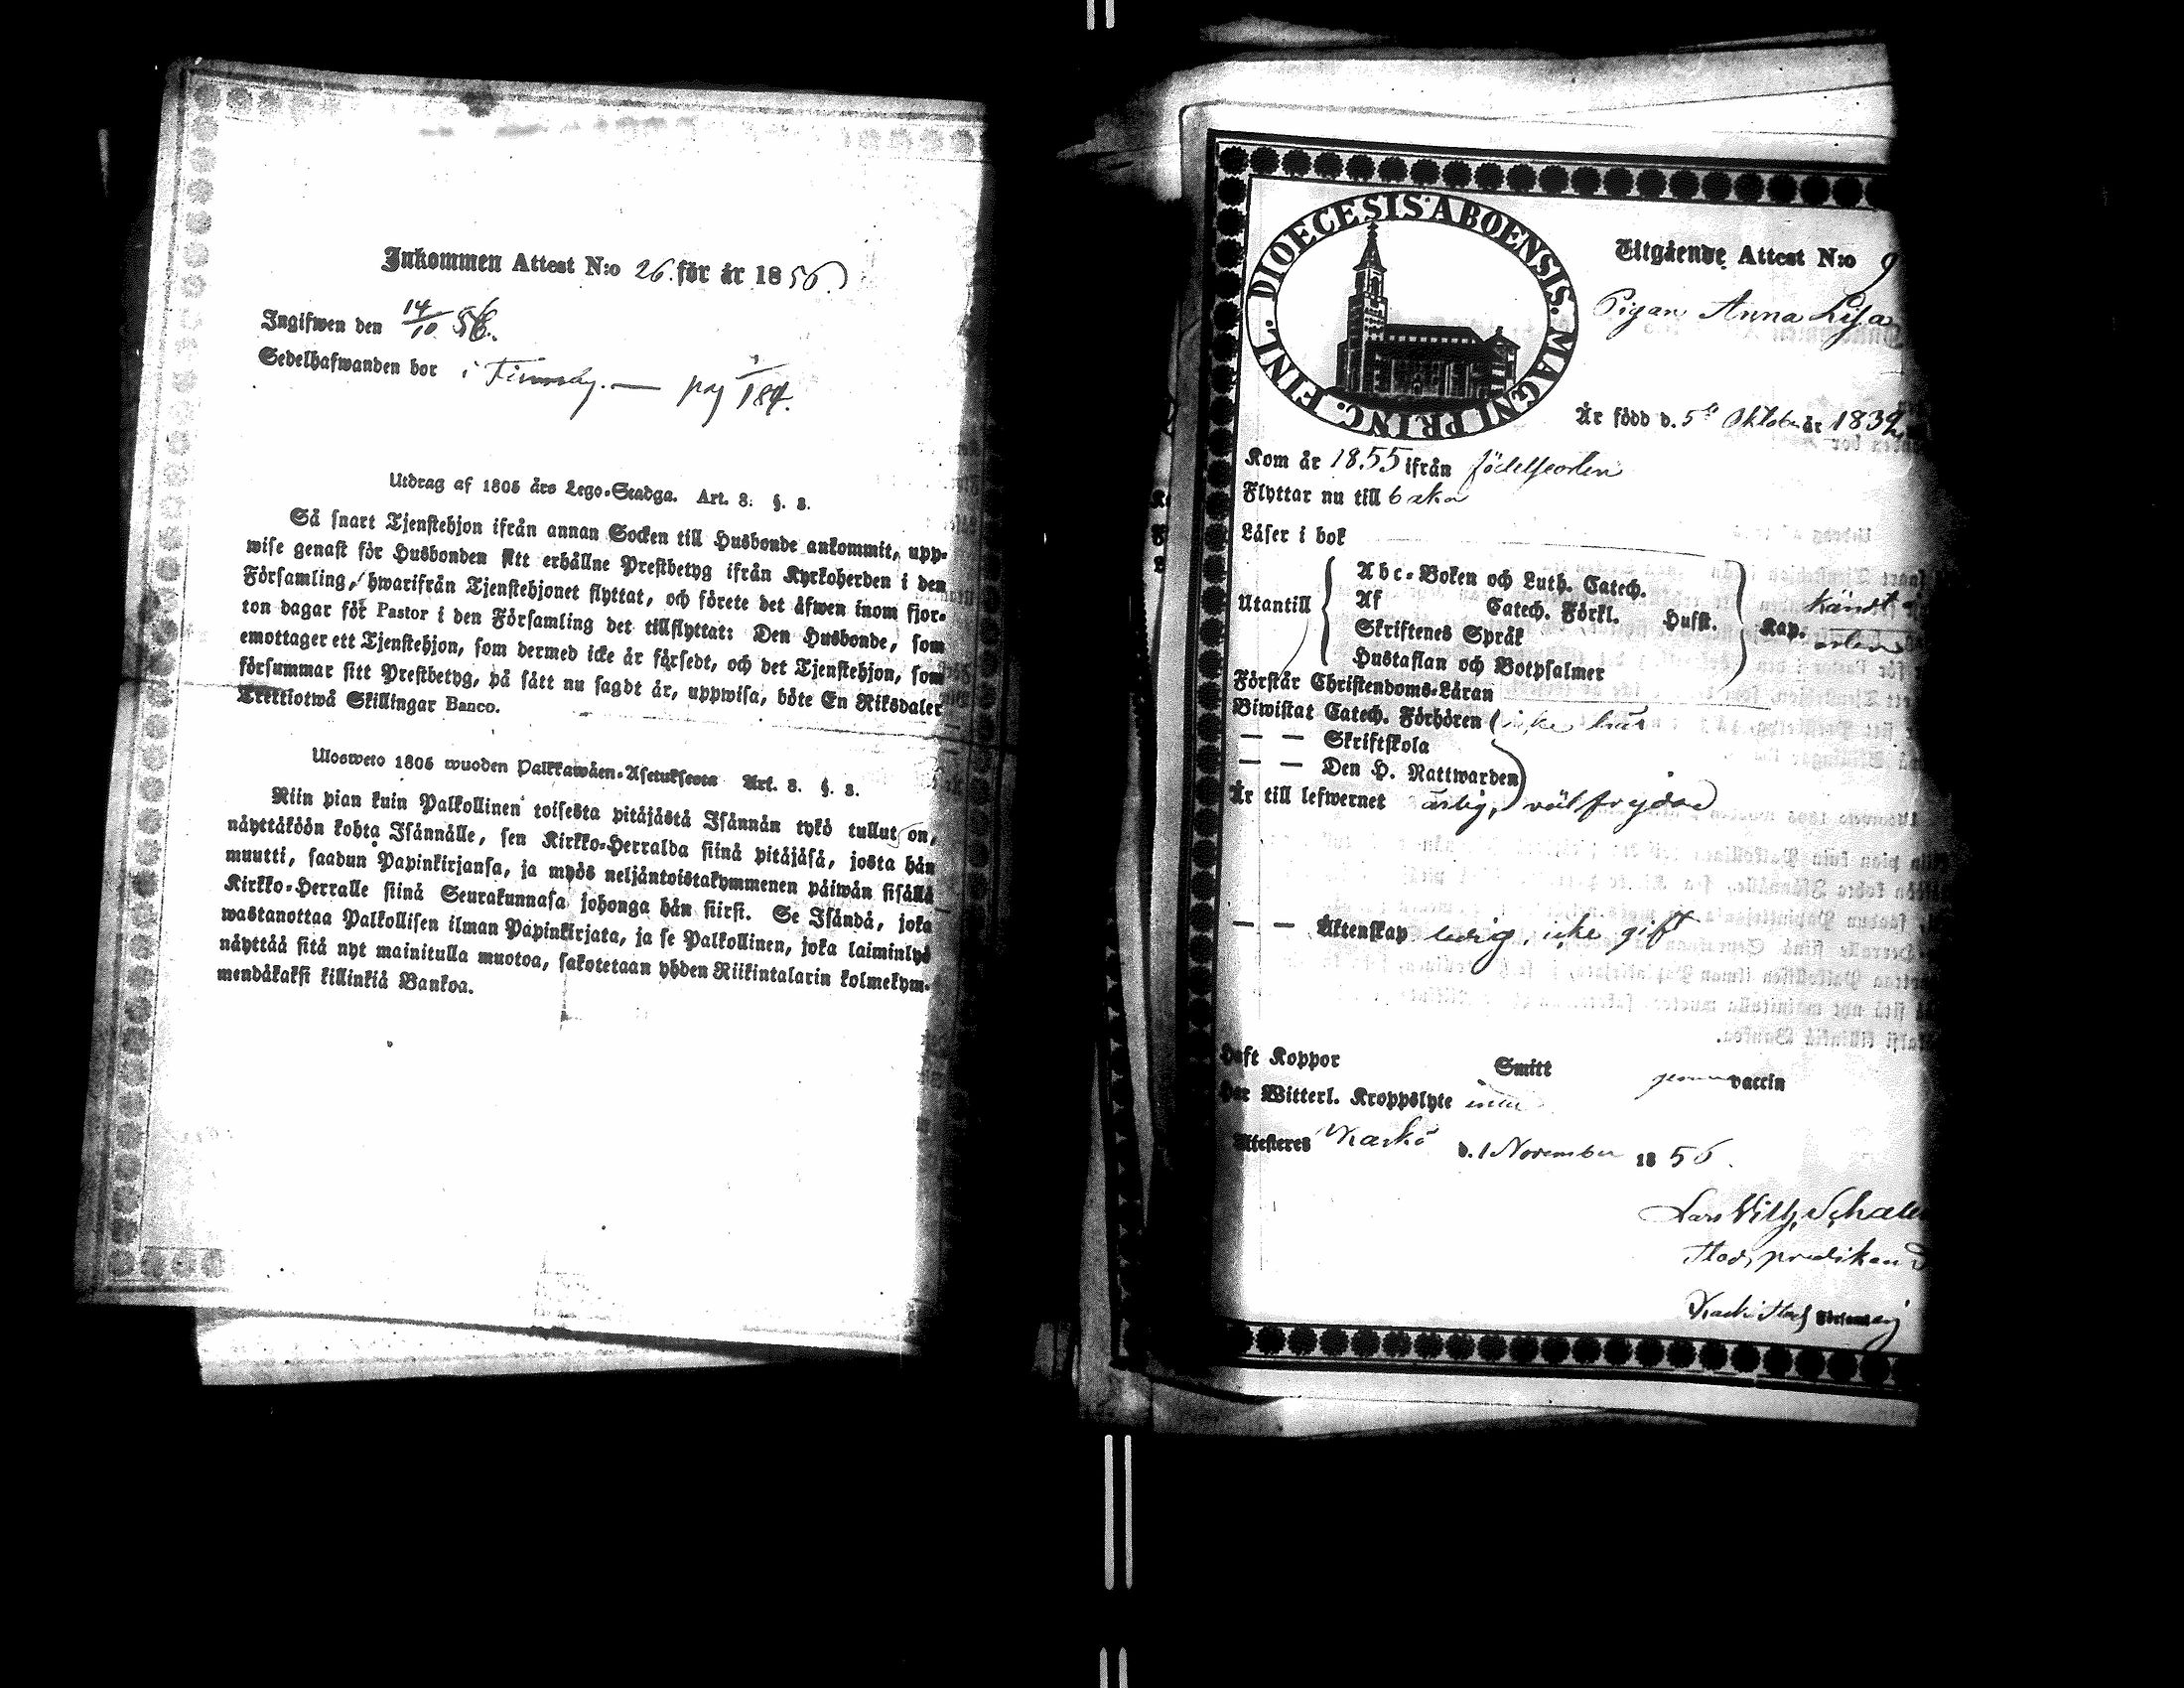 Inkommen Attest N:o 26. för år 1856.
Ingifwen den 14/10 56.
Sedelhafwanden bor i Finnby. — pag 184.
Utdrag af 1805 års Lego-Stadga. Art. 8. §. 8.
Så snart Tjenstehjon ifrån annan Socken till Husbonde ankommit, upp-
wise genast för Husbonden sitt erhållne Prestbetyg ifrån Kyrkoherden i den
Församling, hwarifrån Tjenstehjonet flyttat, och förete det åfwen inom fjor-
ton dagar för Pastor i den Församling det tillflyttat: Den Husbonde, som
emottager ett Tjenstehjon, som dermed icke år försedt, och det Tjenstehjon, som
försummar sitt Prestbetyg, på sått nu sagdt år, uppwisa, böte En Riksdaler
Trettiotwå Skillingar Banco.
Ulosweto 1805 wuoden Palkkawåen-Asetuksesta Art. 8. §. 8.
Niin pian kuin Palkollinen toisesta pitåjåstå Isånnån tykö tullut on,
nåyttåköön kohta Isånnålle, sen Kirkko-Herralda siinå pitåjåså, josta hån
muutti, saadun Papinkirjansa, ja myös neljåntoistakymmenen påiwån sisållå
Kirkko-Herralle siinå Seurakunnasa johonga hån siirsi. Se Isåndå, joka
wastanottaa Palkollisen ilman Papinkirjata, ja se Palkollinen, joka laiminlyö
nåyttåå sitå nyt mainitulla muotoa, sakotetaan yhden Riikintalarin kolmekym-
mendåkaksi killinkiå Bankoa.
DIOECESIS ABOENSIS. MAGNI PRINC. FINL.
Utgående Attest N:o 9
Pigan Anna Lisa
År född d. 5e Oktober år 1832
Kom år 1855 ifrån födelseorten
Flyttar nu till
Låser i bok
Utantill
Abc-Boken och Luth. Catech.
Af Catech. Förkl. Husst.
Skriftenes Språk
Hustaflan och Botpsalmer
Kap.
Förstår Christendoms-Låran
Biwistat Catech. Förhören icke här
— — Skriftskola
— — Den H. Nattwarden
Är till lefwernet ärlig, välfrejdad
— — Äktenskap ledig, icke gift
Haft Koppor Smitt genom vaccin
Har Witterl. Kroppslyte intet
Attesteres Kaskö d. 1 November 1856.
Lars Wilh. Schal
Stadspredikan
Kaskö Stads Församling